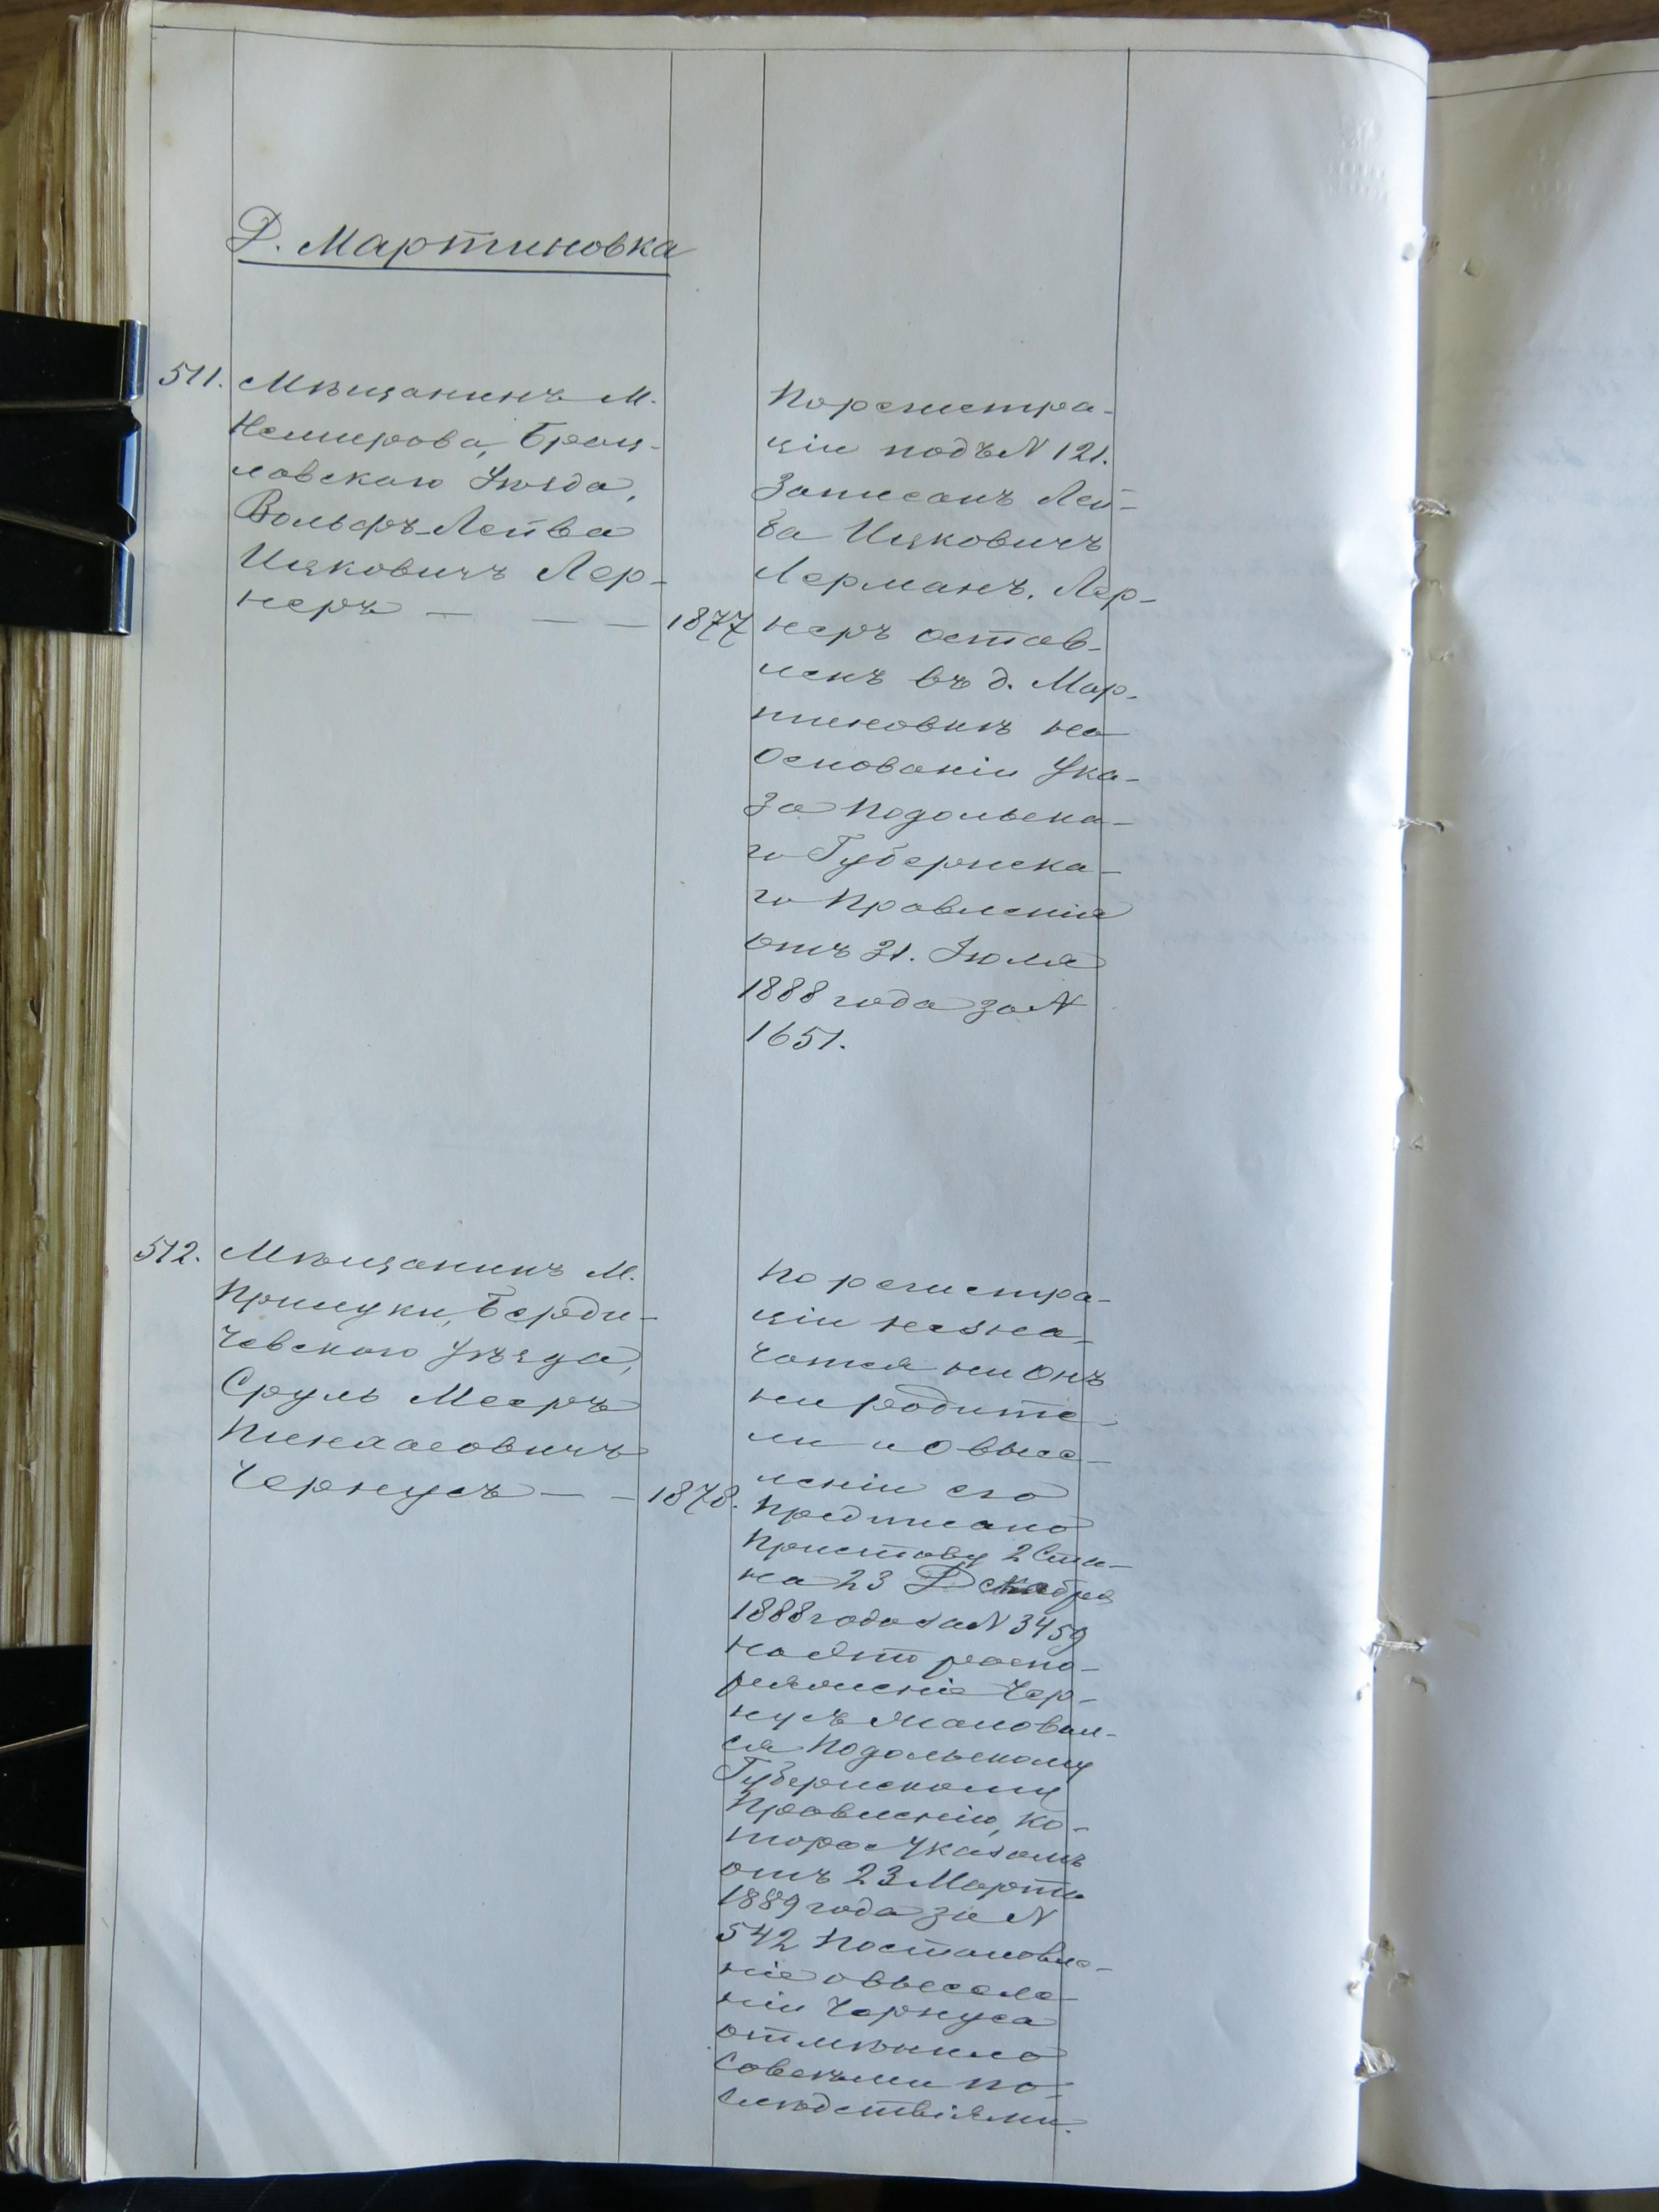 Д. Мартиновка
511. Мѣщанинъ М.
Немирова, Брац-
лавскаго Уѣзда,
Вольфъ-Лейба
Ицковичъ Лер-
неръ — — — 1877
По регистра-
ціи подъ N 121.
Записанъ Лей-
ба Ицковичъ
Лерманъ. Лер-
неръ остав-
ленъ въ д. Мар-
тиновкѣ на
Основаніи Ука-
за Подольска-
го Губернска-
го Правленія
отъ 31. Іюля
1888 года за N
1651.
512. Мѣщанинъ М.
Прилуки, Берди-
чевскаго Уѣзда,
Сруль Мееръ
Пинхасовичъ
Чернусъ — — 1878.
По регистра-
ціи незна-
чатся ни онъ
ни родите-
ли и о высе-
леніи его
предписано
Приставу 2 Ста-
на 23 Декабря
1888 года за N 3459
на это распо-
ряженіе Чер-
нусъ жаловал-
ся Подольскому
Губернскому
Правленію, ко-
торое Указомъ
отъ 23 Марта
1889 года за N
542 Постановле-
ніе о выселе-
ніи Чернуса
отмѣнило
со всѣми по-
слѣдствіями.